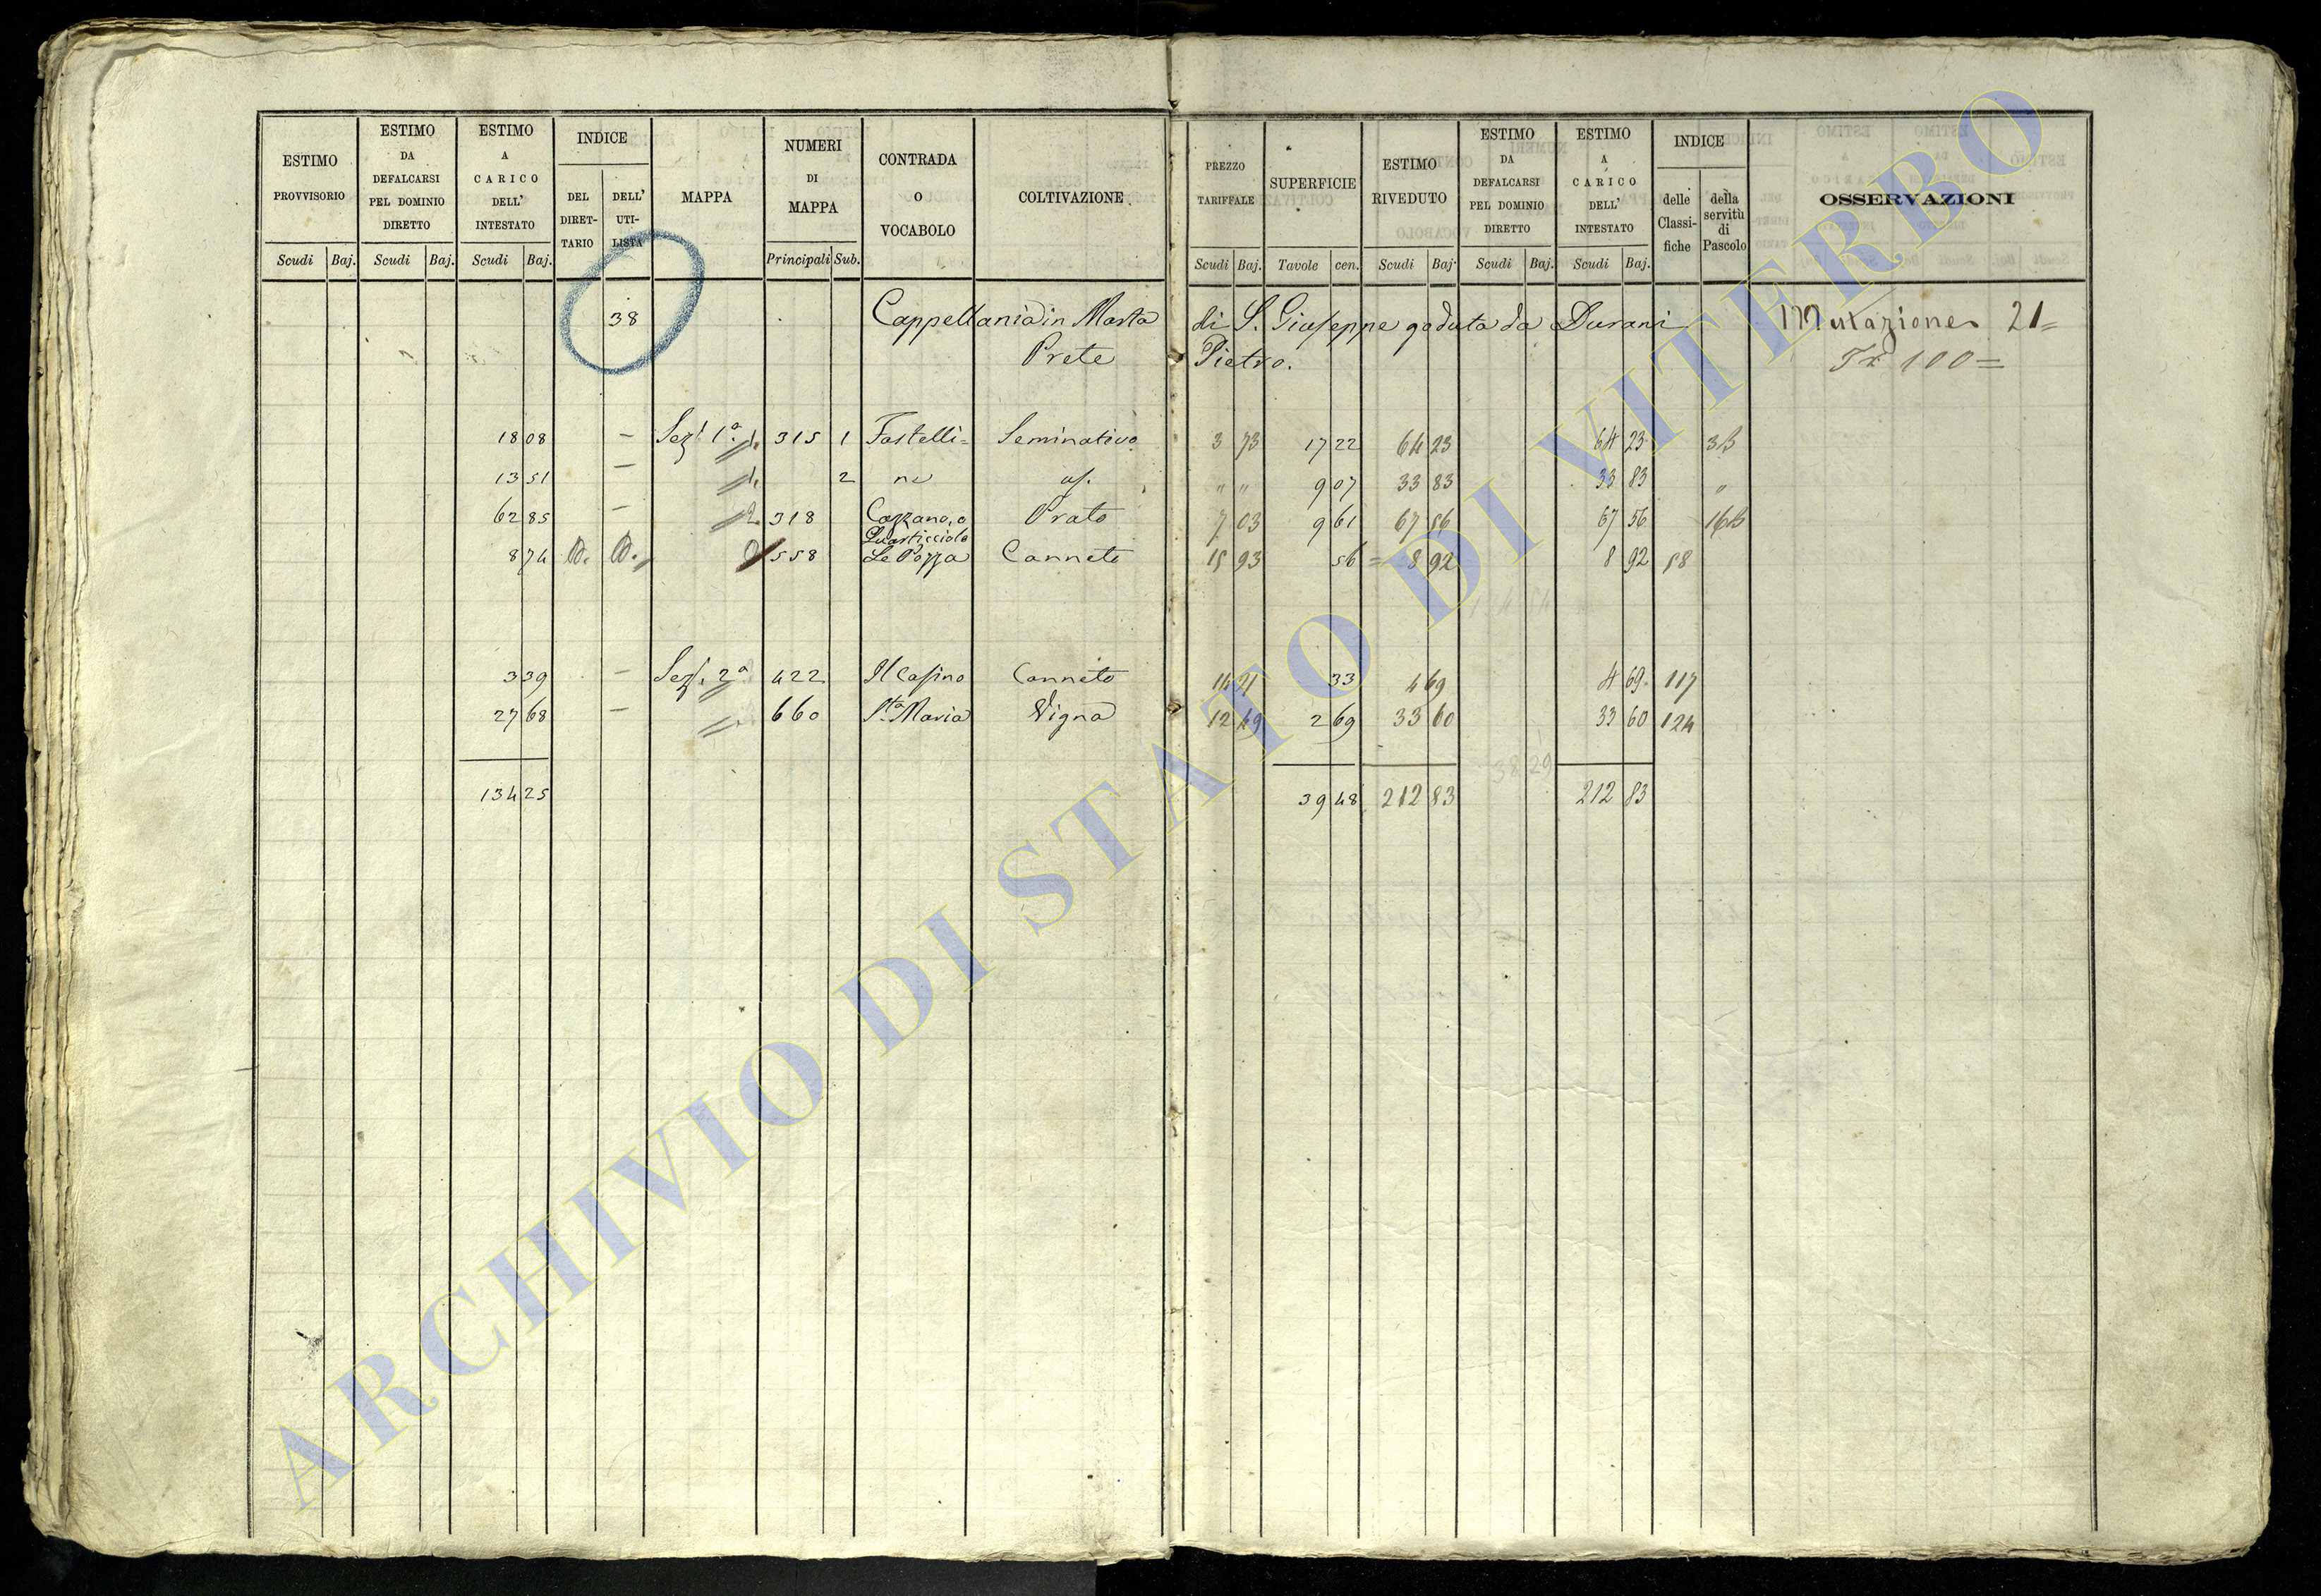 ESTIMO PROVVISORIO
Scudi Baj.
ESTIMO DA DEFALCARSI PEL DOMINIO DIRETTO
Scudi Baj.
ESTIMO A CARICO DELL' INTESTATO
Scudi Baj.
INDICE
DEL DIRET-TARIO
DELL' UTI-LISTA
MAPPA
NUMERI DI MAPPA
Principali Sub.
CONTRADA O VOCABOLO
COLTIVAZIONE
PREZZO TARIFFALE
Scudi Baj.
SUPERFICIE
Tavole cen.
ESTIMO RIVEDUTO
Scudi Baj.
ESTIMO DA DEFALCARSI PEL DOMINIO DIRETTO
Scudi Baj.
ESTIMO A CARICO DELL' INTESTATO
Scudi Baj.
INDICE
delle Classi-fiche
della servitù di Pascolo
OSSERVAZIONI
38 Cappellania in Marta di S. Giuseppe goduta da Durani Mutazione 21=
Prete Pietro. 100=
18 08 – Sez. 1a 1. 315 1 Fastelli= Seminativo 3 73 17 22 64 23 64 23 3B
13 51 – 1. 2 ne 〃 〃 9 07 33 83 33 83 〃
62 85 – 2 318 Cozzano, o Prato 7 03 9 61 67 56 67 56 16B
Quarticciolo
8 74 558 Le Pozza Canneto 15 93 56 = 8 92 8 92 58
3 39 – Sez. 2a 422 Il Casino Canneto 14 21 33 4 69 4 69 117
27 68 – 660 Sta Maria Vigna 12 49 2 69 33 60 33 60 124
38 29
134 25 39 48 212 83 212 83
ARCHIVIO DI STATO DI VITERBO